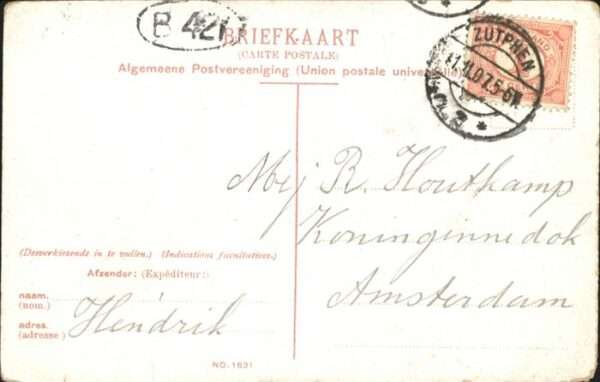 B 421
BRIEFKAART
(CARTE POSTALE)
Algemeene Postvereeniging (Union postale universelle)
ZUTPHEN
11.11.07.5-6N
Mej R. Houtkamp
Koninginnedok
Amsterdam
(Desverkiezende in te vullen.) (Indications facultatives.)
Afzender: (Expéditeur:)
naam.
(nom.)
Hendrik
adres.
(adresse)
NO. 1631